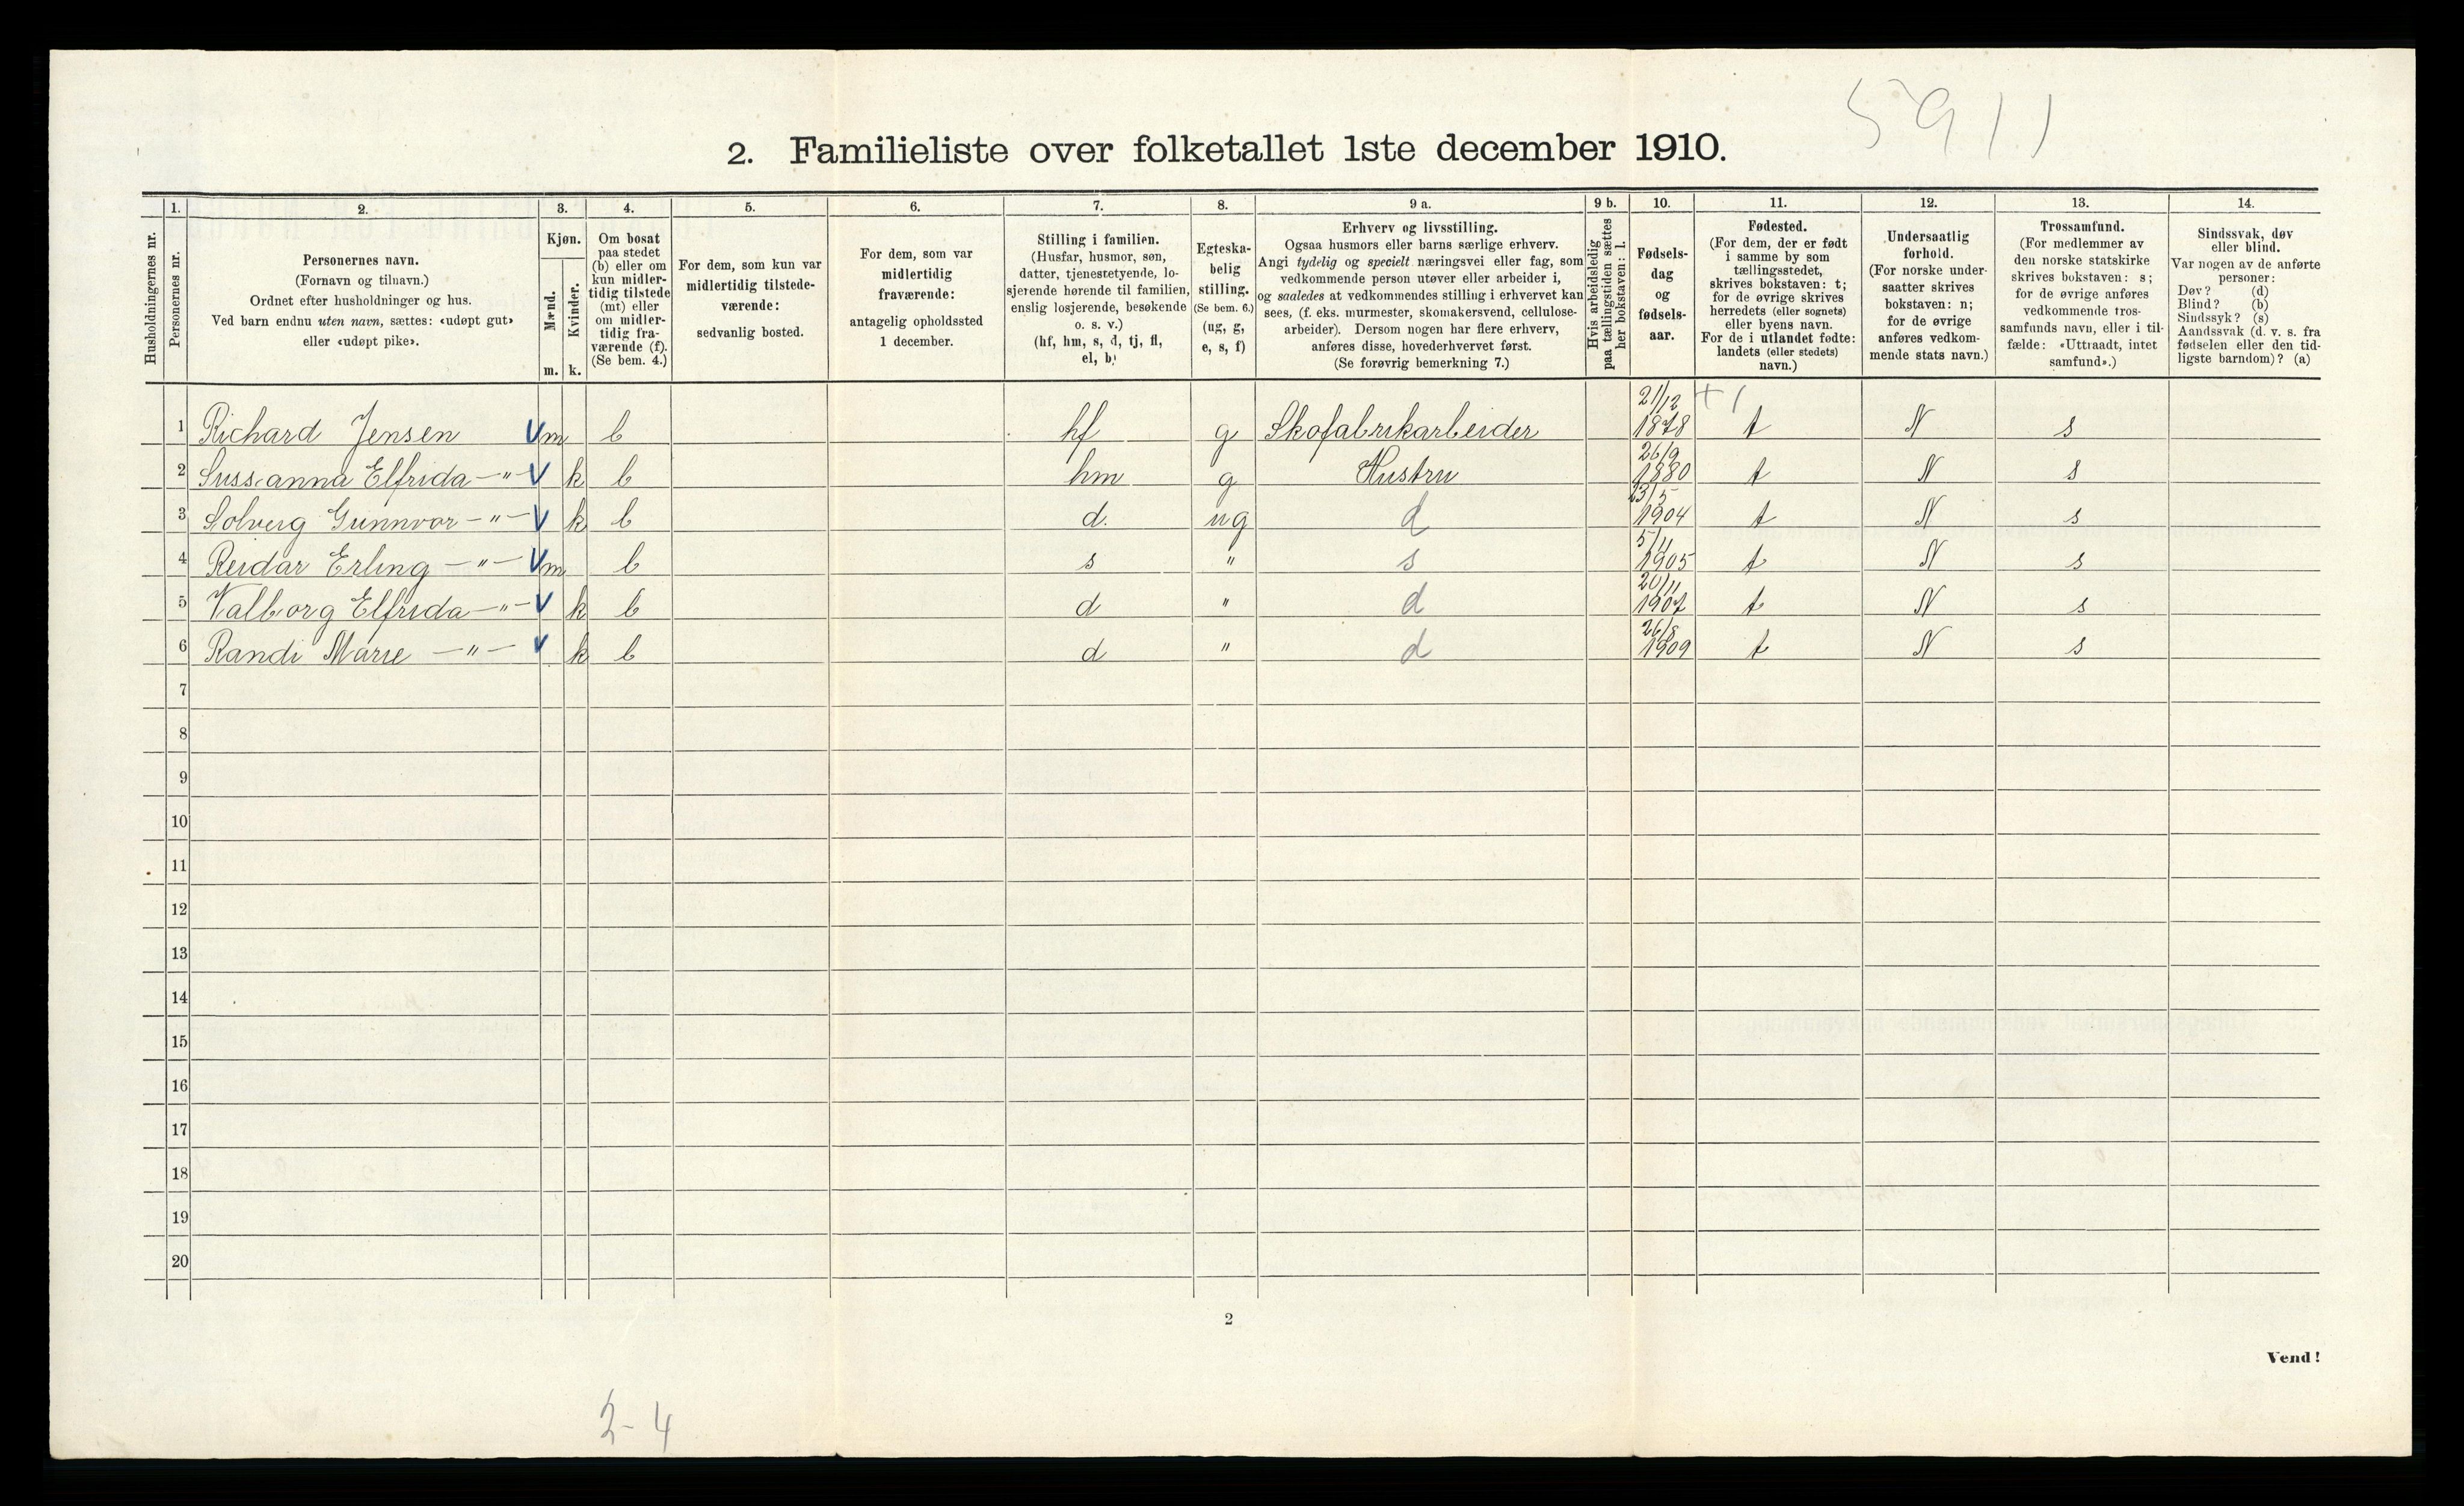 5911
2. Familieliste over folketallet 1ste december 1910.
Husholdningernes nr.
1.
Personernes nr.
2.
Personernes navn.
(Fornavn og tilnavn.)
Ordnet efter husholdninger og hus.
Ved barn endnu uten navn, sættes: «udøpt gut»
eller «udøpt pike».
3.
Kjøn.
Mænd.
Kvinder.
m. k.
4.
Om bosat
paa stedet
(b) eller om
kun midler-
tidig tilstede
(mt) eller
om midler-
tidig fra-
værende (f).
(Se bem. 4.)
5.
For dem, som kun var
midlertidig tilstede-
værende:
sedvanlig bosted.
6.
For dem, som var
midlertidig
fraværende:
antagelig opholdssted
1 december.
7.
Stilling i familien.
(Husfar, husmor, søn,
datter, tjenestetyende, lo-
sjerende hørende til familien,
enslig losjerende, besøkende
o. s. v.)
(hf, hm, s, d, tj, fl,
el, b)
8.
Egteska-
belig
stilling.
(Se bem. 6.)
(ug, g,
e, s, f)
9 a.
Erhverv og livsstilling.
Ogsaa husmors eller barns særlige erhverv.
Angi tydelig og specielt næringsvei eller fag, som
vedkommende person utøver eller arbeider i,
og saaledes at vedkommendes stilling i erhvervet kan
sees, (f. eks. murmester, skomakersvend, cellulose-
arbeider). Dersom nogen har flere erhverv,
anføres disse, hovederhvervet først.
(Se forøvrig bemerkning 7.)
9 b.
Hvis arbeidsledig
paa tællingstiden sættes
her bokstaven: l.
10.
Fødsels-
dag
og
fødsels-
aar.
11.
Fødested.
(For dem, der er født
i samme by som
tællingsstedet,
skrives bokstaven: t;
for de øvrige skrives
herredets (eller sognets)
eller byens navn.
For de i utlandet fødte:
landets (eller stedets)
navn.)
12.
Undersaatlig
forhold.
(For norske under-
saatter skrives
bokstaven: n;
for de øvrige
anføres vedkom-
mende stats navn.)
13.
Trossamfund.
(For medlemmer av
den norske statskirke
skrives bokstaven: s;
for de øvrige anføres
vedkommende tros-
samfunds navn, eller i til-
fælde: «Uttraadt, intet
samfund».)
14.
Sindssvak, døv
eller blind.
Var nogen av de anførte
personer:
Døv? (d)
Blind? (b)
Sindssyk? (s)
Aandssvak (d. v. s. fra
fødselen eller den tid-
ligste barndom)? (a)
1 Richard Jensen V m b hf g Skofabrikarbeider 21/12 1878 +1 t N s
2 Sussanna Elfrida —"— V k b hm g Hustru 26/9 1880 t N s
3 Solveig Gunnvor —"— V k b d. ug d 23/5 1904 t N s
4 Reidar Erling —"— V m b s " s 5/11 1905 t N s
5 Valborg Elfrida —"— V k b d " d 20/11 1907 t N s
6 Randi Marie —"— V k b d " d 26/8 1909 t N s
7
8
9
10
11
12
13
14
15
16
17
18
19
20
2
Vend!
2-4